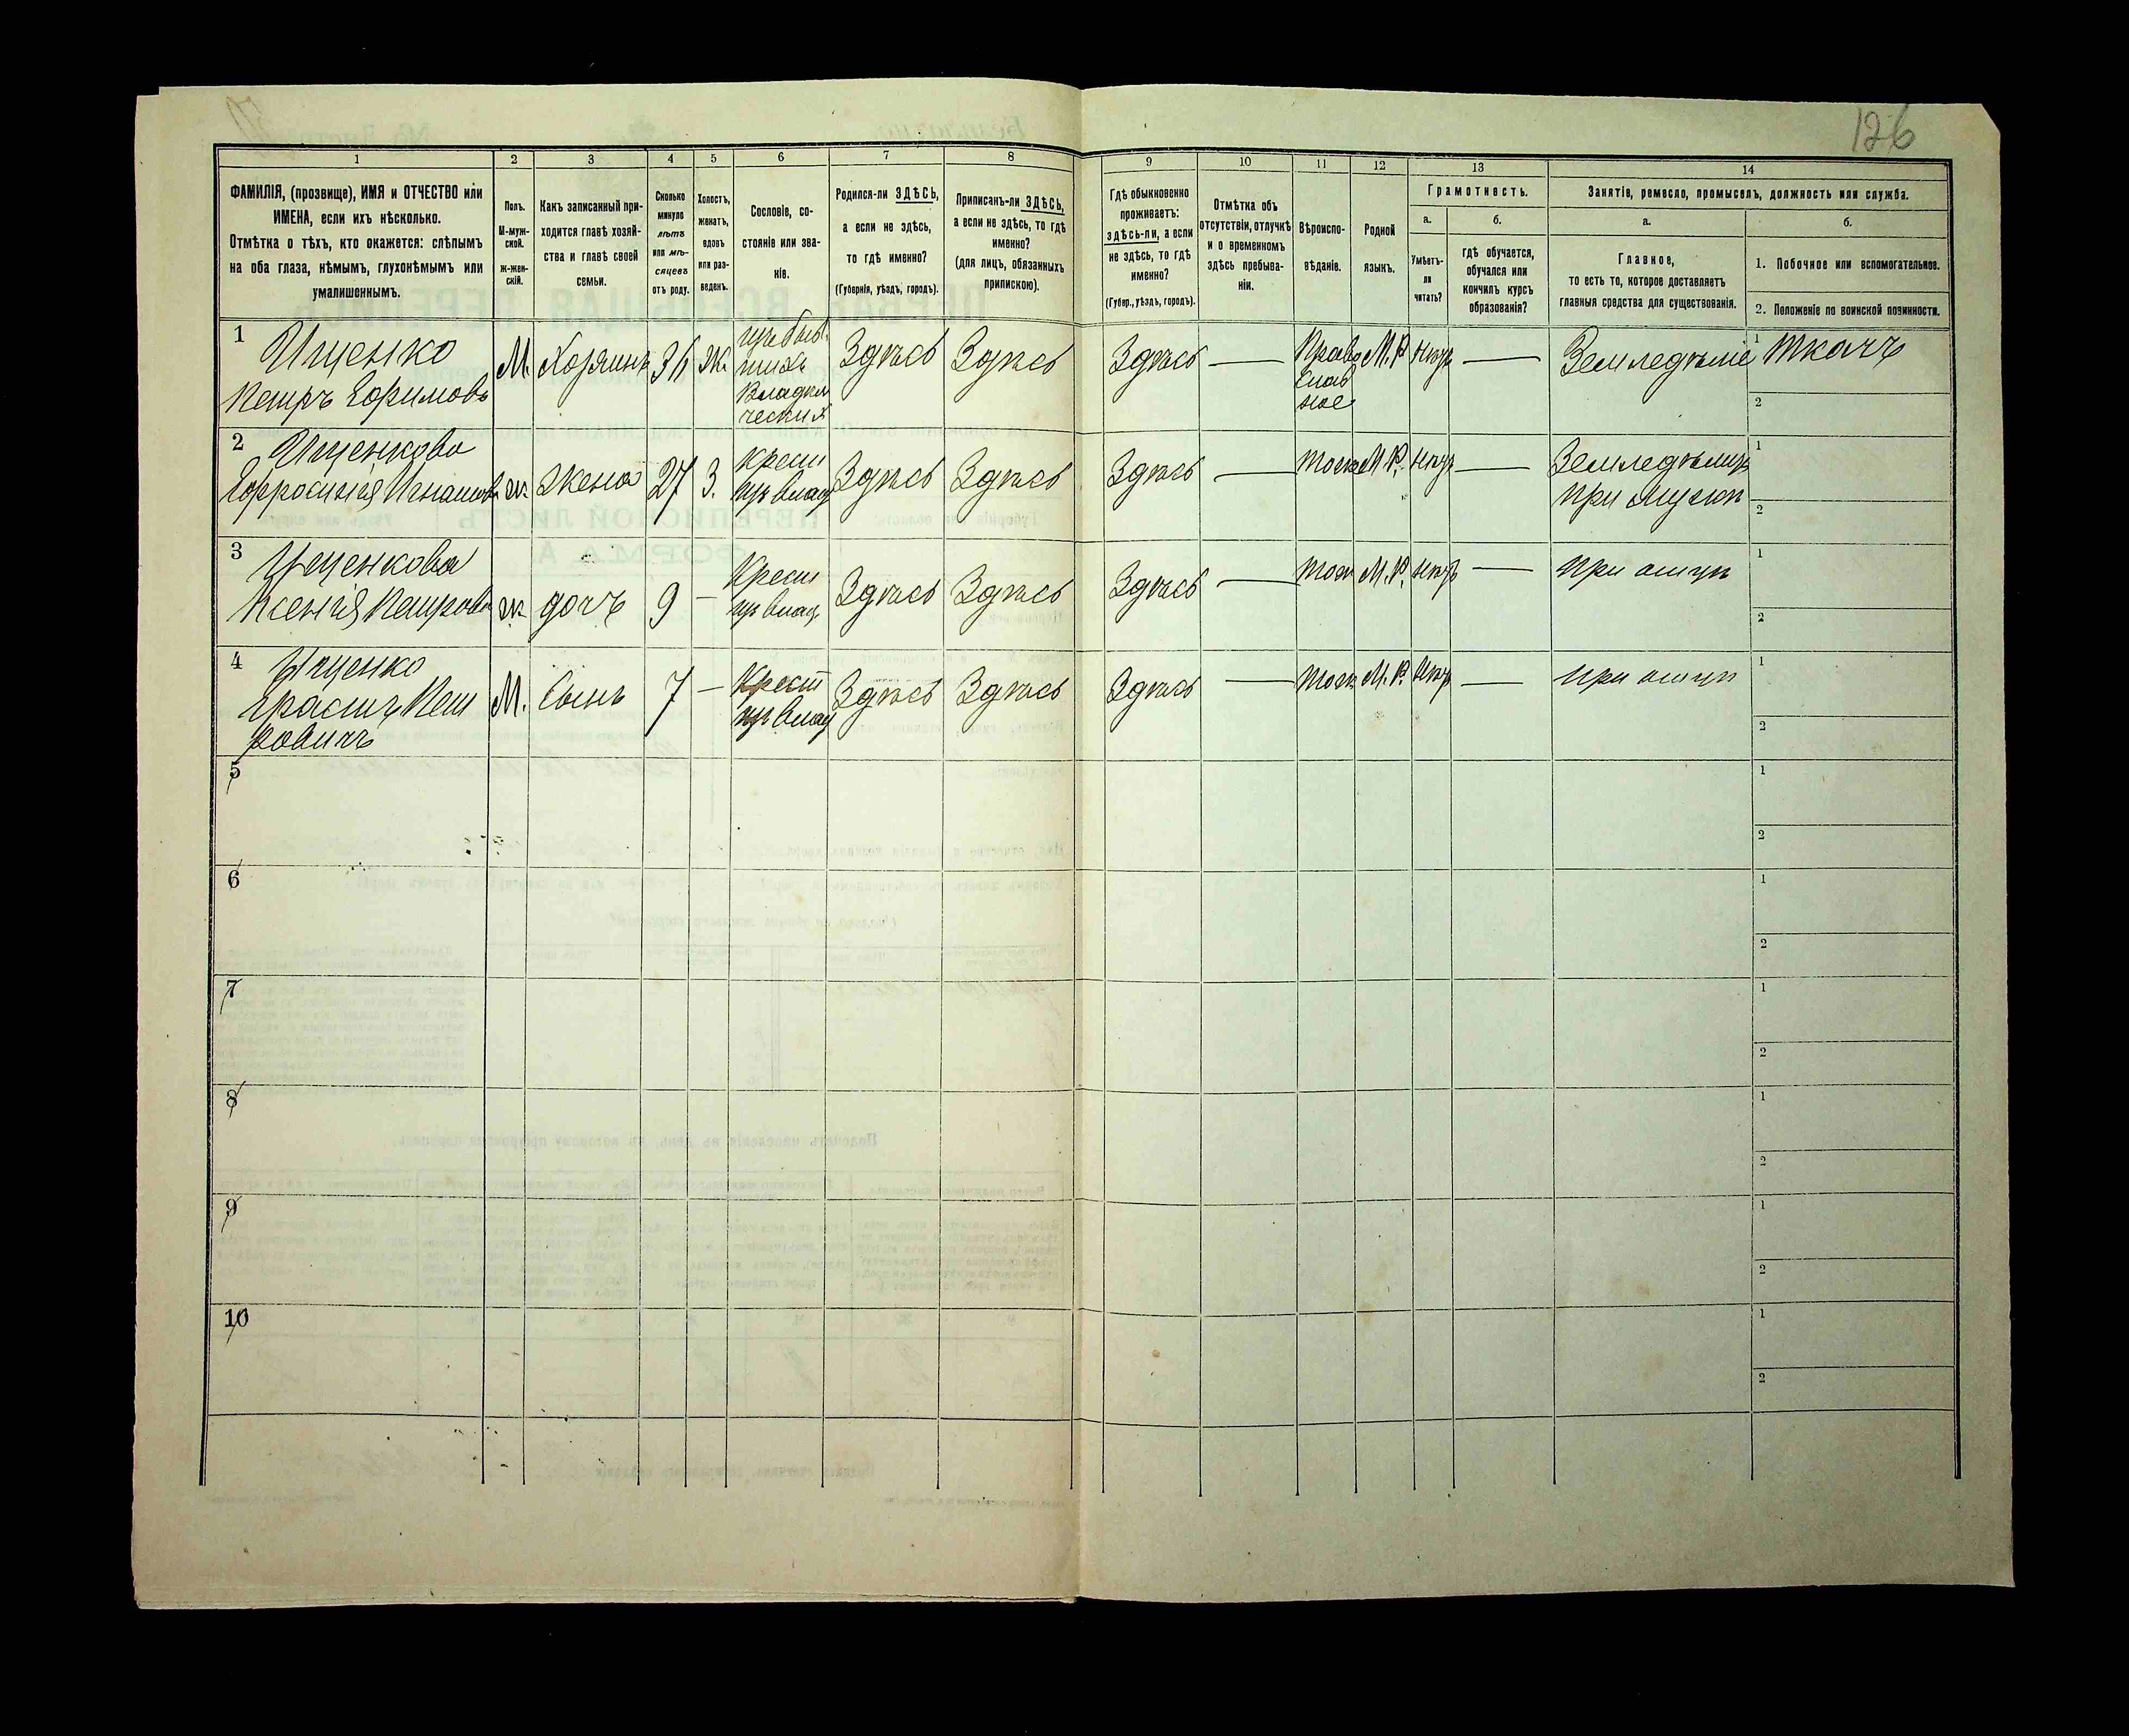 126
1 2 3 4 5 6 7 8 9 10 11 12 13 14
ФАМИЛІЯ, (прозвище), ИМЯ и ОТЧЕСТВО или
ИМЕНА, если ихъ нѣсколько.
Отмѣтка о тѣхъ, кто окажется: слѣпымъ
на оба глаза, нѣмымъ, глухонѣмымъ или
умалишеннымъ.
Полъ.
М-муж-
ской.
ж-жен-
скій.
Какъ записанный при-
ходится главѣ хозяй-
ства и главѣ своей
семьи.
Сколько
минуло
лѣтъ
или мѣ-
сяцевъ
отъ роду.
Холостъ,
женатъ,
вдовъ
или раз-
веденъ.
Сословіе, со-
стояніе или зва-
ніе.
Родился-ли ЗДѢСЬ,
а если не здѣсь,
то гдѣ именно?
(Губернія, уѣздъ, городъ).
Приписанъ-ли ЗДѢСЬ,
а если не здѣсь, то гдѣ
именно?
(для лицъ, обязанныхъ
припискою).
Гдѣ обыкновенно
проживаетъ:
здѣсь-ли, а если
не здѣсь, то гдѣ
именно?
(Губер., уѣздъ, городъ).
Отмѣтка объ
отсутствіи, отлучкѣ
и о временномъ
здѣсь пребыва-
ніи.
Вѣроиспо-
вѣданіе.
Родной
языкъ.
Грамотность.
а.
Умѣетъ-
ли
читать?
б.
гдѣ обучается,
обучался или
кончилъ курсъ
образованія?
Занятіе, ремесло, промыселъ, должность или служба.
а.
Главное,
то есть то, которое доставляетъ
главныя средства для существованія.
б.
1. Побочное или вспомогательное.
2. Положеніе по воинской повинности.
1 Ищенко
Петръ Ефимовъ
М. Хозяинъ 36 Ж.
Здѣсь Здѣсь Здѣсь —
Право
слав
ное
М.Р. нѣтъ — Земледѣліе
1 Ткачъ
2
2 Ищенкова
Ефросинія Игнатов
ж. Жена 27 З.
Крест
Здѣсь Здѣсь Здѣсь — тож М.Р. нѣтъ —
при мужѣ
1
2
3 Ищенкова
Ксенія Петрова
ж. дочь 9 —
Крест
Здѣсь Здѣсь Здѣсь — тож М.Р. нѣтъ — при отцѣ
1
2
4 Ищенко
Герасимъ Пет
ровичъ
М. Сынъ 7 —
Крест
Здѣсь Здѣсь Здѣсь — тож М.Р. нѣтъ — при отцѣ
1
2
5
1
2
6
1
2
7
1
2
8
1
2
9
1
2
10
1
2